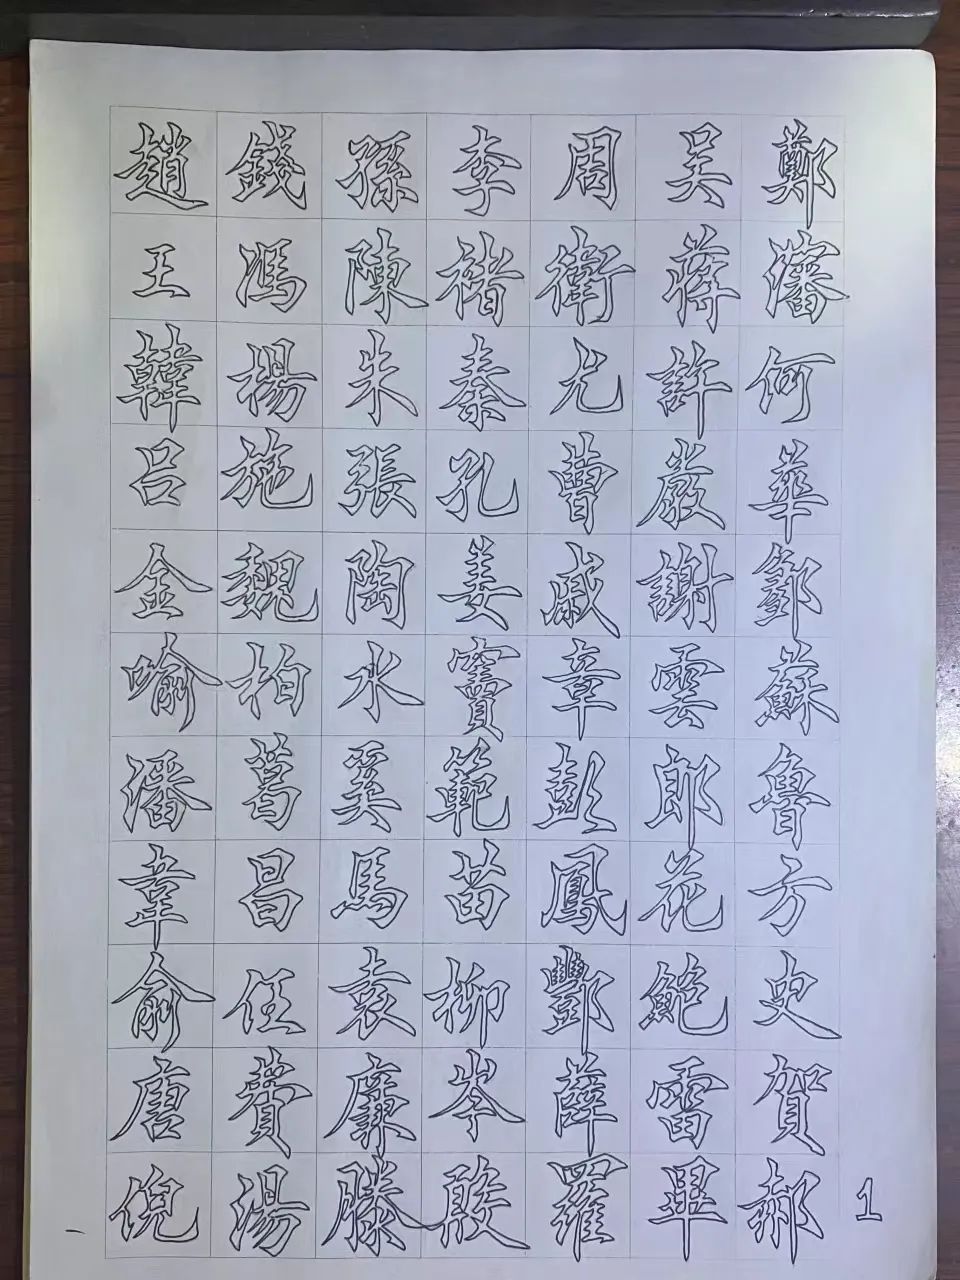 趙錢孫李周吴鄭
王馮陳褚衛蔣瀋
韓楊朱秦尤許何
吕施張孔曹嚴華
金魏陶姜戚謝鄒
喻柏水竇章雲蘇
潘葛奚範彭郎魯
韋昌馬苗鳳花方
俞任袁柳酆鮑史
唐費廉岑薛雷賀
倪湯滕殷羅畢郝
1
一